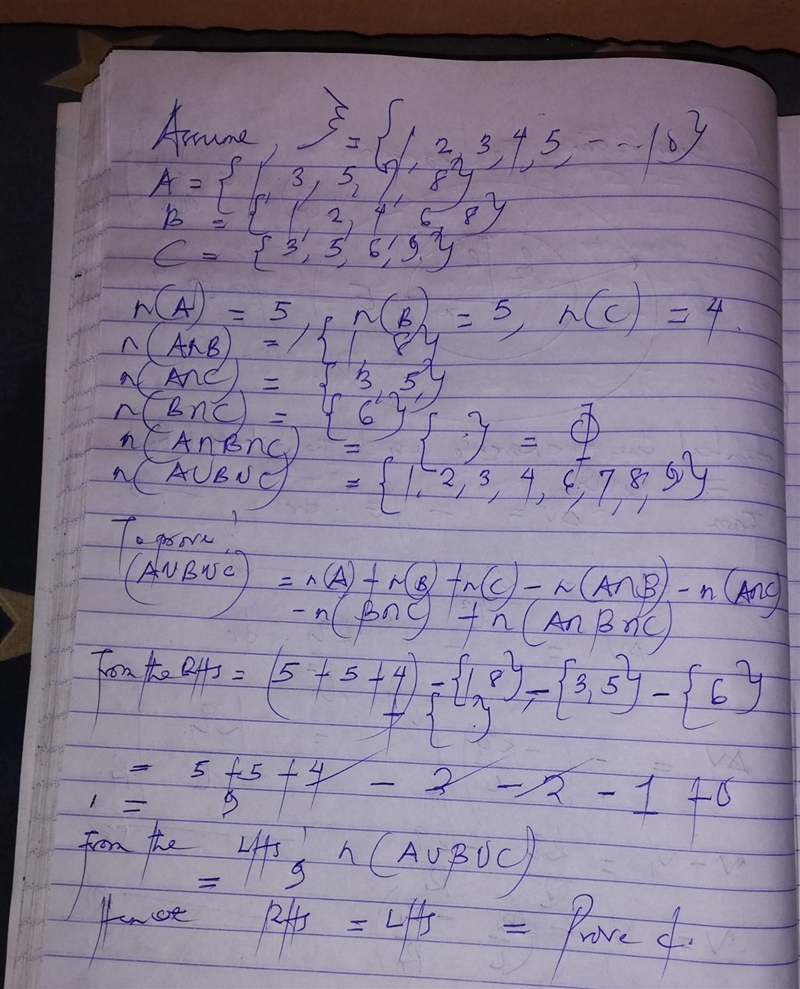 Assume, ξ = {1, 2, 3, 4, 5, - - - 10}
A = {1, 3, 5, 7, 8}
B = {1, 2, 4, 6, 8}
C = {3, 5, 6, 9}
n(A) = 5, n(B) = 5, n(C) = 4.
n(A∩B) = {1, 8}
n(A∩C) = {3, 5}
n(B∩C) = {6}
n(A∩B∩C) = { } = Φ
n(A∪B∪C) = {1, 2, 3, 4, 6, 7, 8, 9}
To prove,
(A∪B∪C) = n(A) + n(B) + n(C) - n(A∩B) - n(A∩C)
- n(B∩C) + n(A∩B∩C)
From the RHS = (5 + 5 + 4) - {1, 8} - {3, 5} - {6}
+ { }
= 5 + 5 + 4 - 2 - 2 - 1 + 0
= 9
From the LHS, n(A∪B∪C)
= 9
Hence RHS = LHS = Proved.